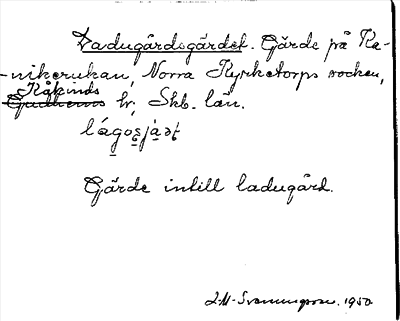 Ladugårdsgärdet. Gärde på Ka-
-nikerukan, Norra Kyrketorps socken,
Kåkinds
Gudhems hr, Skb. län.
lágo̱sjä̱ət
Gärde intill ladugård.
J.M. Svenungsson. 1950